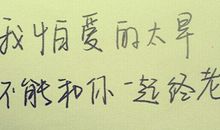 我怕爱的太早
不能和你一起终老